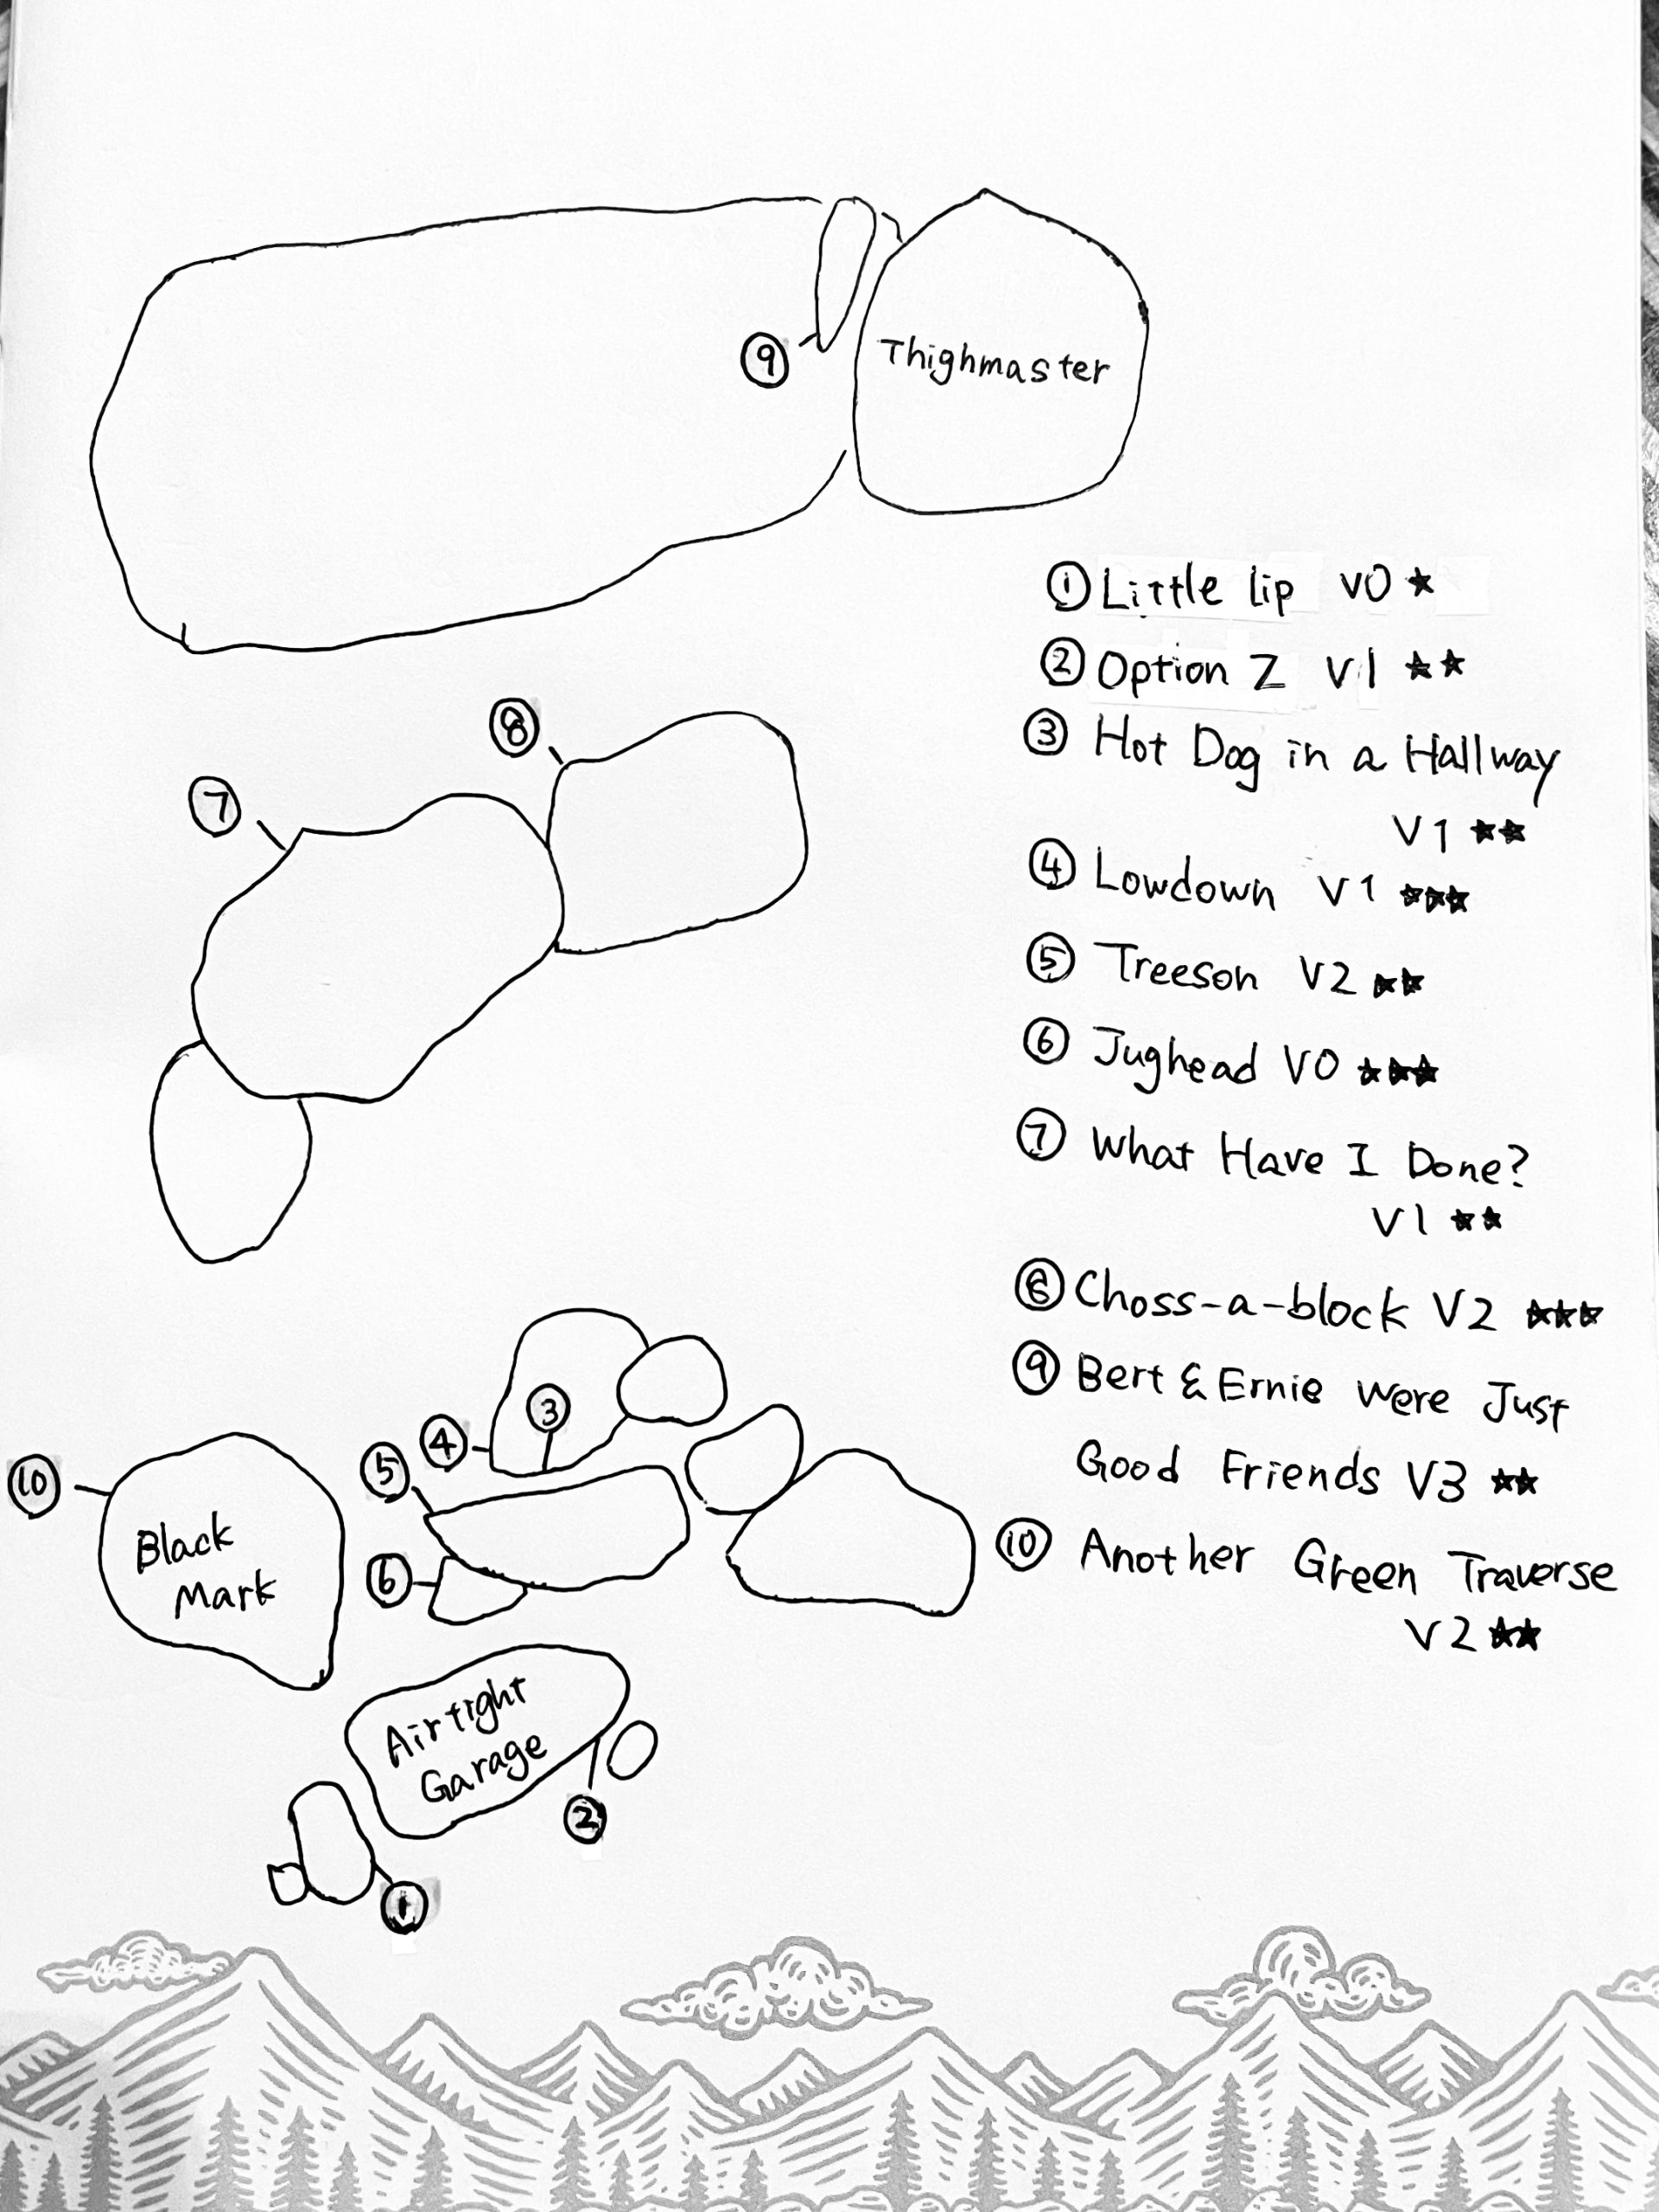 ⑨
Thighmaster
⑧
⑦
③
④
⑤
⑩
Black
Mark
⑥
Airtight
Garage
②
①
① Little lip V0 ★
② Option Z V1 ★★
③ Hot Dog in a Hallway
V1 ★★
④ Lowdown V1 ★★★
⑤ Treeson V2 ★★
⑥ Jughead V0 ★★★
⑦ What Have I Done?
V1 ★★
⑧ Choss-a-block V2 ★★★
⑨ Bert & Ernie Were Just
Good Friends V3 ★★
⑩ Another Green Traverse
V2 ★★